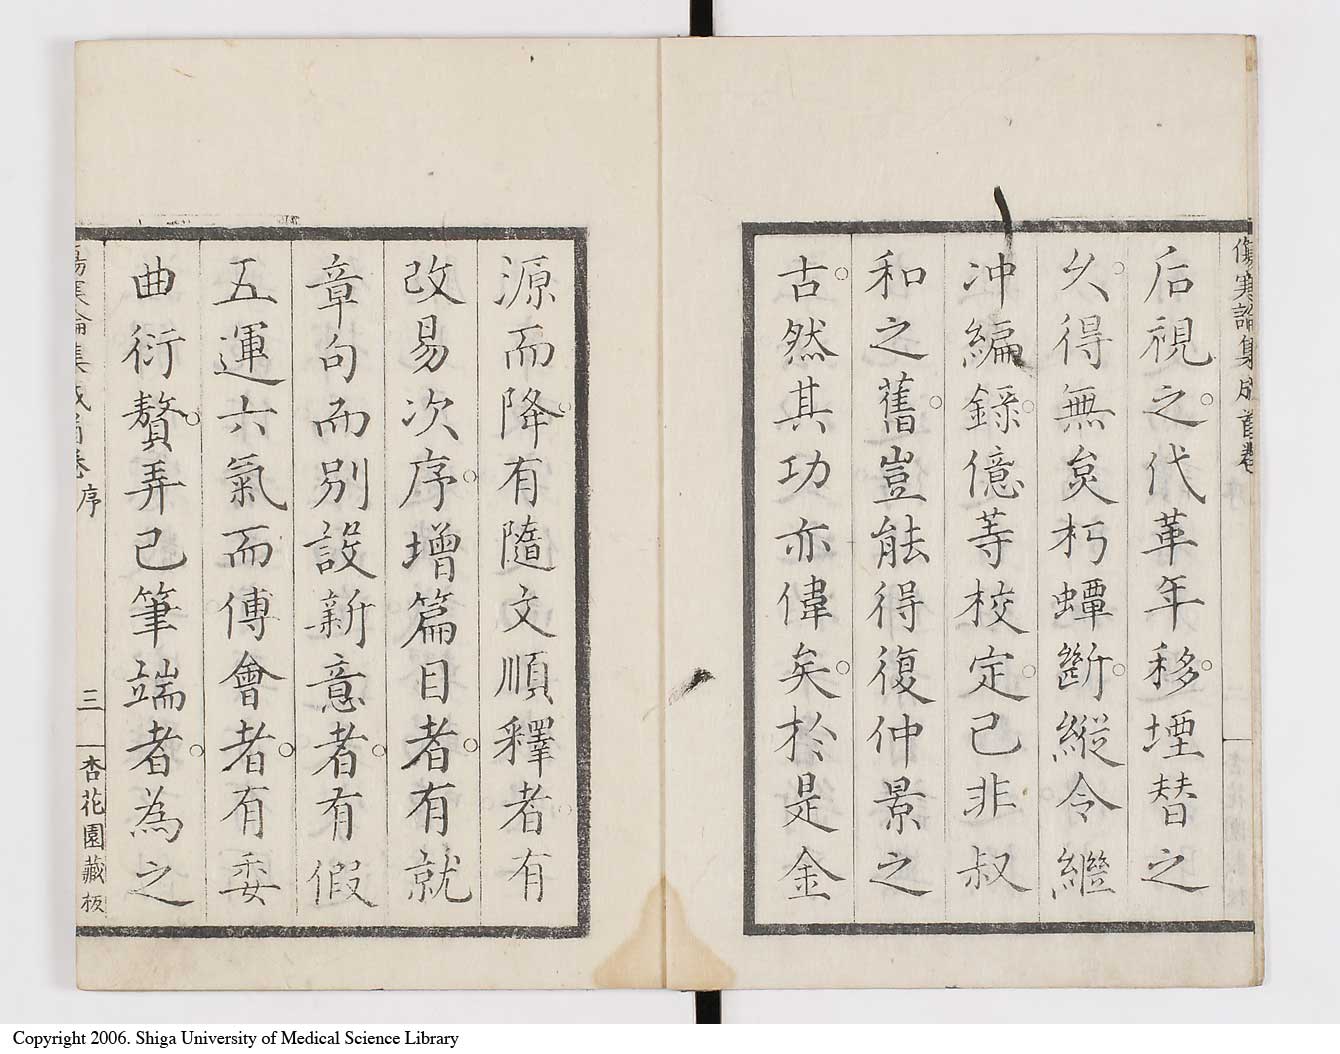 傷寒論集成首卷
后視之。代革年移。堙替之
久。得無㒵朽蟫斷。縱令繼
冲編錄。億等校定。已非叔
和之舊。豈能得復仲景之
古。然其功亦偉矣。於是金
源而降。有隨文順釋者。有
改易次序。增篇目者。有就
章句而別設新意者。有假
五運六氣而傅會者。有委
曲衍贅。弄己筆端者。為之
傷寒論集成首卷 序 三 杏花園藏板
Copyright 2006. Shiga University of Medical Science Library